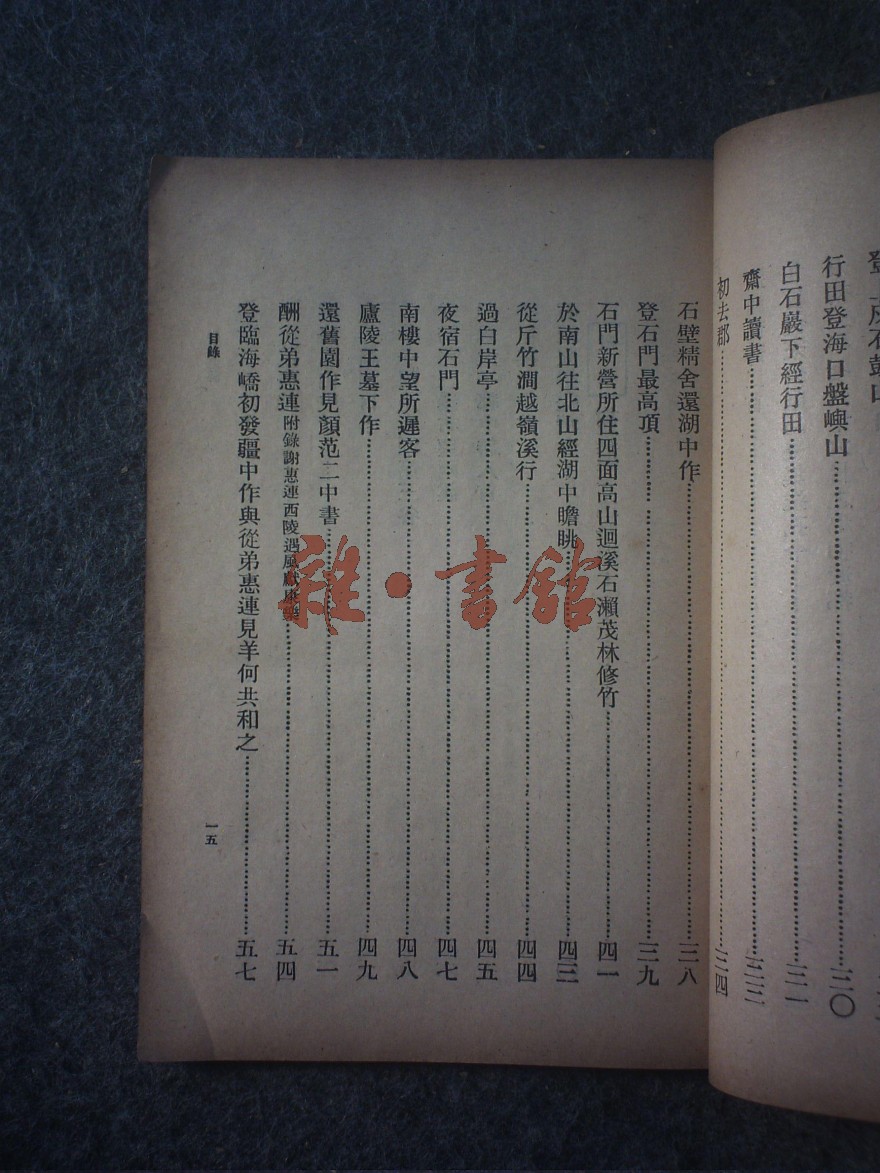 行田登海口盤嶼山……三〇
白石巖下經行田……三一
齋中讀書……三三
初去郡……三四
石壁精舍還湖中作……三八
登石門最高頂……三九
石門新營所住四面高山迴溪石瀨茂林修竹……四一
於南山往北山經湖中瞻眺……四三
從斤竹澗越嶺溪行……四四
過白岸亭……四五
夜宿石門……四七
南樓中望所遲客……四八
廬陵王墓下作……四九
還舊園作見顏范二中書……五一
酬從弟惠連附錄謝惠連西陵遇風獻康樂……五四
登臨海嶠初發疆中作與從弟惠連見羊何共和之……五七
目錄
一五
雜·書館